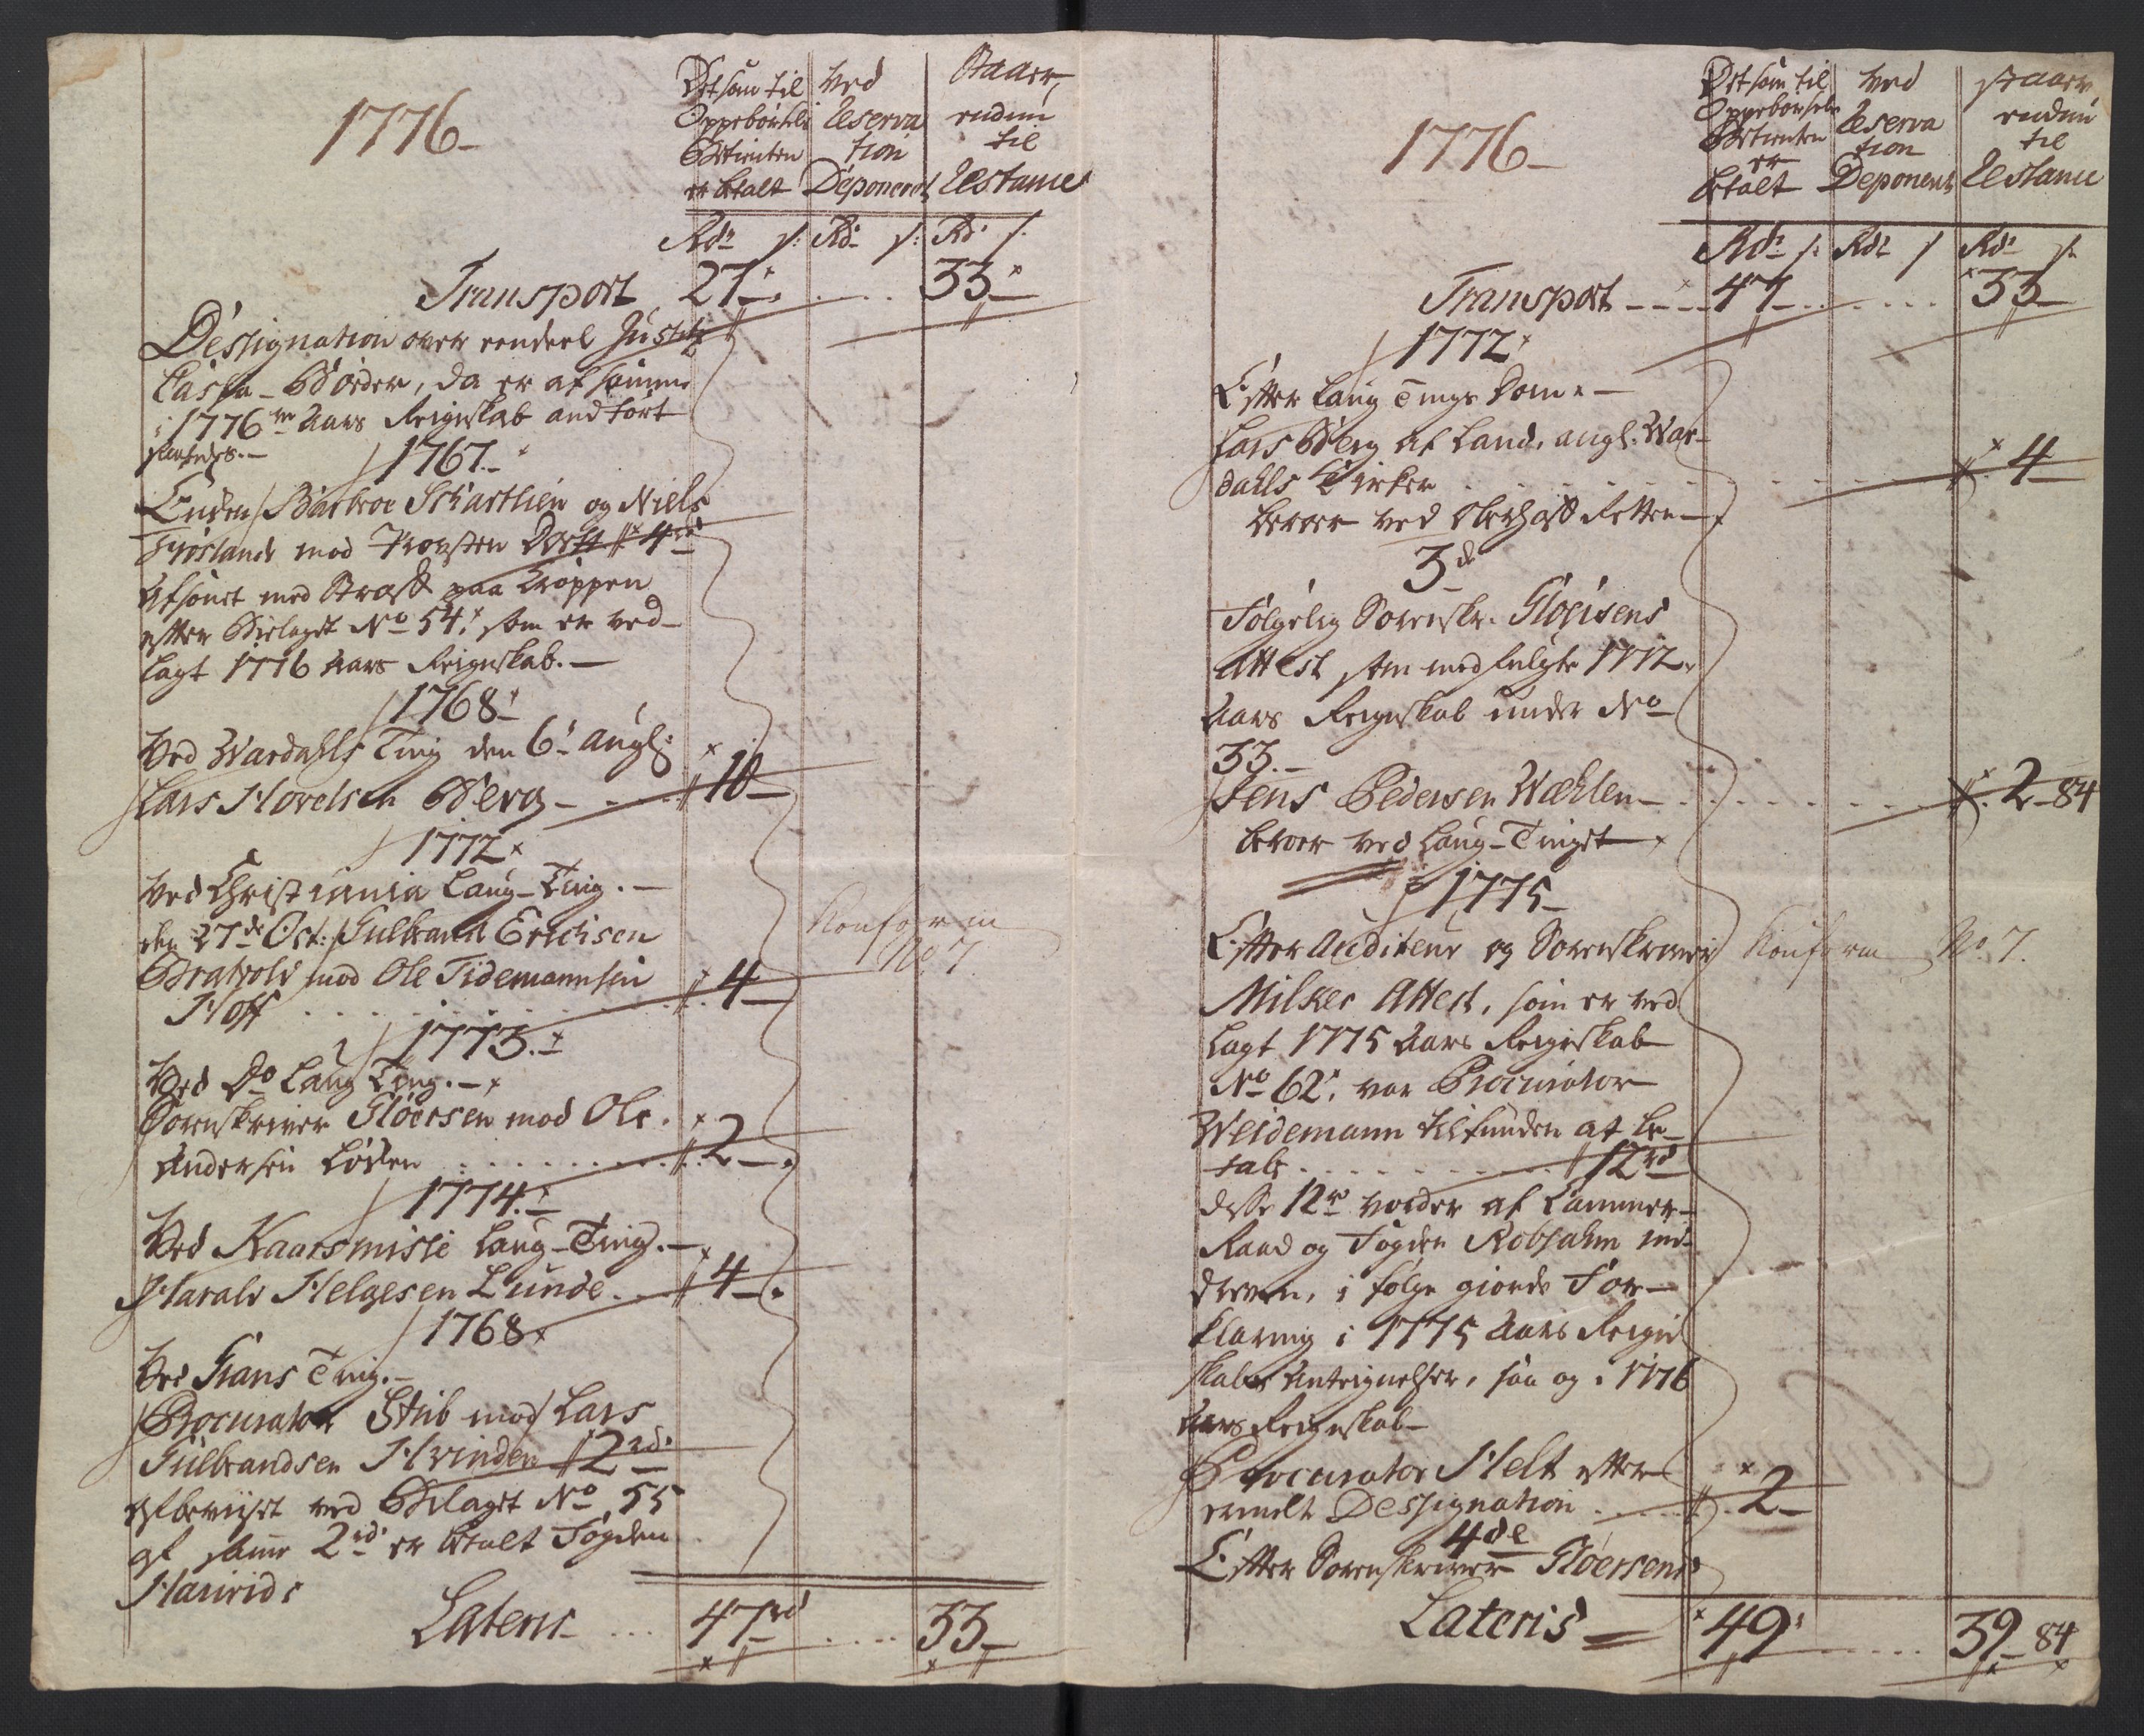 1776
Det som til
Oppebørsels
Betienten
er betalt
Ved
Reserva
tion
Deponeret
Staaer
endnu
til
Restance
Rdr s: Rd s: Rd s:
Transport 27 33
Designation over eendeel Justitz
Cassa-Bøder, da er af samme
i 1776 Aars Reignskab andført
1767
Enken Barbroe Skiartlien og Niels
mod Torsten 4 rd
Afsonet med Straff paa Kroppen
efter Bielaget No 54, som er ved-
lagt 1776 Aars Reignskab.
1768
Ved Wardahls Ting den 6 Augl:
Lars Hovelsen Berg 10
1772
Ved Christiania Laug-Ting.
den 27de Oct: Gulbrand Erichsen
Bratvold mod Ole Tidemannsen
Hoff 4
Konform
No. 7
1773
Ved Do Laug Ting.
Sorenskriver Gløersen mod Ole
Andersen Løsen 2
1774
Ved Kaarsmisse Laug-Ting.
Harald Helgesen Lunde 4
1768
Ved Grans Ting.
Procurator Stub mod Lars
Gulbrandsen Hvinden 2 rd
Afbeviist ved Bilaget No 55
at samme 2 rd er betalt Fogden
Lateris 47 rd 33
1776
Det som til
Oppebørsels
Betienten
er
betalt
Ved
Reserva
tion
Deponeret
staaer
endnu
til
Restance
Rdr s: Rdr s Rdr s:
Transport 47 33
1772
Efter Laug Tings Dom
Lars Berg af Land, angl. War-
dahls Kirker 4
beroer ved Oberhoff Retten
3de
Følgelig Sorenskr. Gløersens
Attest som medfulgte 1772
Aars Reignskab under No
33.
Jens Pedersen Wæhlen 2 84
beroer ved Laug-Tinget
1775
Efter Auditeur og Sorenskriver Konform No. 7.
Milkes Attest, som er ved
lagt 1775 Aars Reignskab
No 62, var Procurator
Weidemann tilfunden at be-
tale 12 rd
disse 12 rd vorder af Cammer-
Raad og Fogden Robsahm ind-
dreven, i følge giorde For-
klaring i 1775 Aars Reign
skabs Antegnelser, saa og i 1776
Aars Reignskab
Procurator Helt efter
ermelt Designation 2
4de
Efter Sorenskriver Gløersens
Lateris 49 39 84